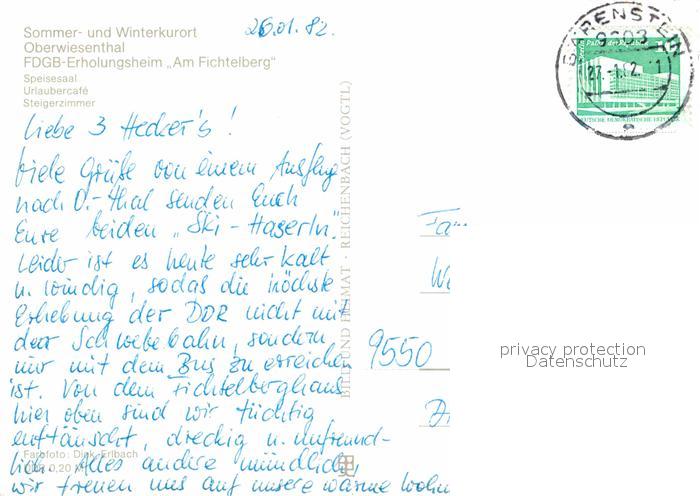 Sommer- und Winterkurort
Oberwiesenthal
FDGB-Erholungsheim „Am Fichtelberg“
Speisesaal
Urlaubercafé
Steigerzimmer
26.01.82.
BÄRENSTEIN
9303
27.-1.82.-11
DEUTSCHE DEMOKRATISCHE REPUBLIK
Liebe 3 Hecker's!
Viele Grüße von einem Ausflug
nach O.-thal senden Euch
Eure beiden „Ski-Haserln“.
Leider ist es heute sehr kalt
u. windig, sodas die höchste
Erhebung der DDR nicht mit
der Schwebebahn, sondern
nur mit dem Bus zu erreichen
ist. Von dem Fichtelberghaus
hier oben sind wir tüchtig
enttäuscht, dreckig u. unfreund-
lich. Alles andere mündlich,
wir freuen uns auf unsere warme Wohn
BILD UND HEIMAT · REICHENBACH (VOGTL)
Fa
9550
privacy protection
Datenschutz
Farbfoto: Dick, Erlbach
0,20 M